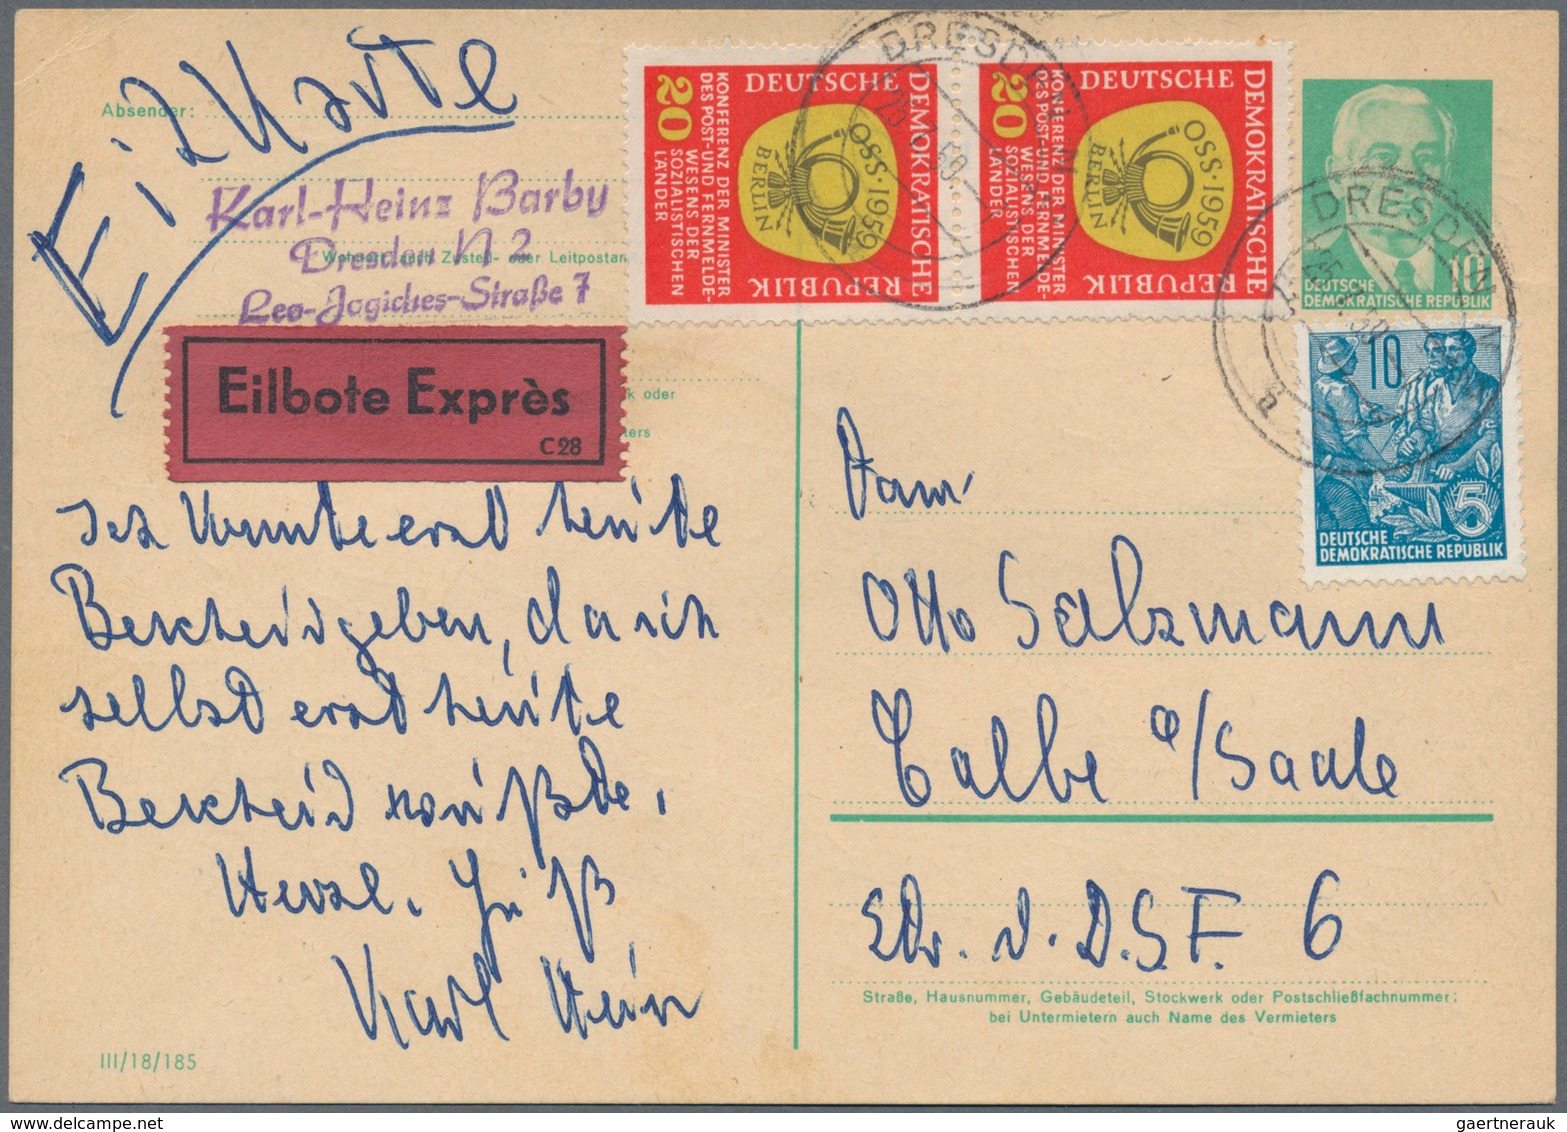 Eilkarte
Absender:
Karl-Heinz Barby
Dresden N 2
Wohnort, auch Zustell- oder Leitpostamt
Leo-Jogiches-Straße 7
Eilbote Exprès
C 28
k oder
ters
Ich konnte erst heute
Bescheid geben, da ich
selbst erst heute
Bescheid wußte.
Herzl. Gruß
Karl Hein
III/18/185
DEUTSCHE
DEMOKRATISCHE
REPUBLIK
OSS·1959
BERLIN
KONFERENZ DER MINISTER
DES POST- UND FERNMELDE-
WESENS DER
SOZIALISTISCHEN
LÄNDER
20
DEUTSCHE
DEMOKRATISCHE
REPUBLIK
OSS·1959
BERLIN
KONFERENZ DER MINISTER
DES POST- UND FERNMELDE-
WESENS DER
SOZIALISTISCHEN
LÄNDER
20
DRESDEN N
10
DEUTSCHE
DEMOKRATISCHE REPUBLIK
DRESDEN N
a
10
5
DEUTSCHE
DEMOKRATISCHE REPUBLIK
Fam.
Otto Salzmann
Calbe a/Saale
Str. d. D.S.F. 6
Straße, Hausnummer, Gebäudeteil, Stockwerk oder Postschließfachnummer;
bei Untermietern auch Name des Vermieters
gaertnerauk @ delcampe.net